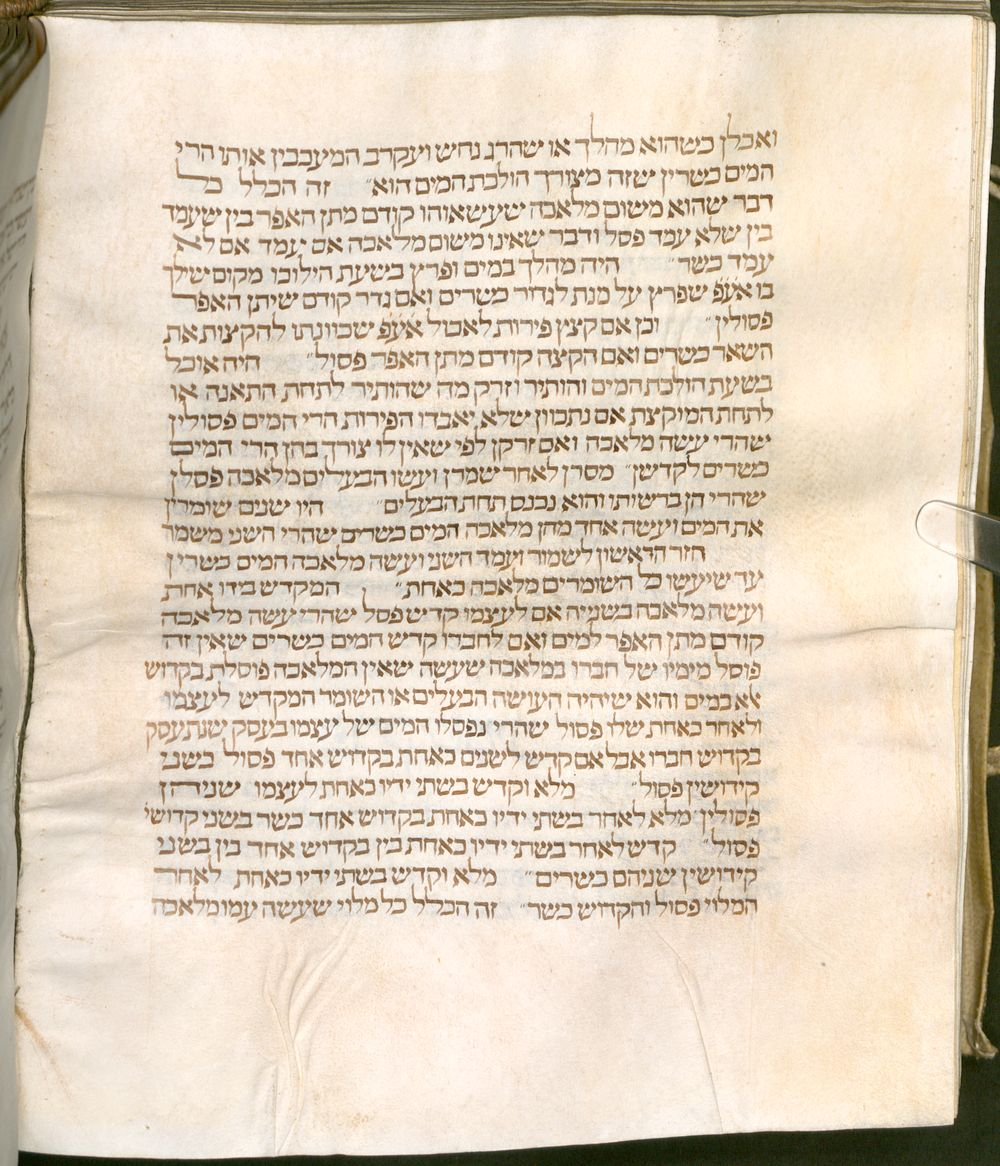 ואכלן כשהוא מהלך או שהרג נחש ועקרב המעכבין אותו הרי
המים כשרין שזה מצורך הולכת המים הוא״ זה הכלל כל
דבר שהוא משום מלאכה שעשאוהו קודם מתן האפר בין שעמד
בין שלא עמד פסל ודבר שאינו משום מלאכה אם עמד אם לא
עמד כשר״ היה מהלך במים ופרץ בשעת הילוכו מקום שילך
בו אע̇פ̇ שפרץ על מנת לגדור כשרים ואם גדר קודם שיתן האפר
פסולין״ וכן אם קצץ פירות לאכול אע̇פ̇ שכוונתו להקצות את
השאר כשרים ואם הקצה קודם מתן האפר פסול״ היה אוכל
בשעת הולכת המים והותיר וזרק מה שהותיר לתחת התאנה או
לתחת המוקצת אם נתכוון שלא יאבדו הפירות הרי המים פסולין
שהרי עשה מלאכה ואם זרקן לפי שאין לו צורך בהן הרי המים
כשרים לקדשן״ מסרן לאחר שמרן ועשו הבעלים מלאכה פסלן
שהרי הן ברשיתו והוא נכנס תחת הבעלים״ היו שנים שומרין
את המים ועשה אחד מהן מלאכה המים כשרים שהרי השני משמר
חזר הראשון לשמור ועמד השני ועשה מלאכה המים כשרין
עד שיעשו כל השומרים מלאכה כאחת״ המקדש בידו אחת
ועשה מלאכה בשנייה אם לעצמו קדיש פסל שהרי עשה מלאכה
קודם מתן האפר למים ואם לחברו קדיש המים כשרים שאין זה
פוסל מימיו של חברו במלאכה שעשה שאין המלאכה פוסלת בקדוש
אלא במים והוא שיהיה העושה הבעלים או השומר המקדיש לעצמו
ולאחר כאחת שלו פסול שהרי נפסלו המים של עצמו בעסק שנתעסק
בקדוש חברו אבל אם קדש לשנים כאחת בקדוש אחד פסול בשני
קידושין פסול״ מלא וקדש בשתי ידיו כאחת לעצמו שניהן
פסולין מלא לאחר בשתי ידיו כאחת בקדוש אחד כשר בשני קדושי׳
פסול״ קדש לאחר בשתי ידיו כאחת בין בקדויש אחד בין בשני
קידושין שניהם כשרים״ מלא וקדש בשתי ידיו כאחת לאחר
המלוי פסול והקדוש כשר״ זה הכלל כל מלוי שעשה עמו מלאכה